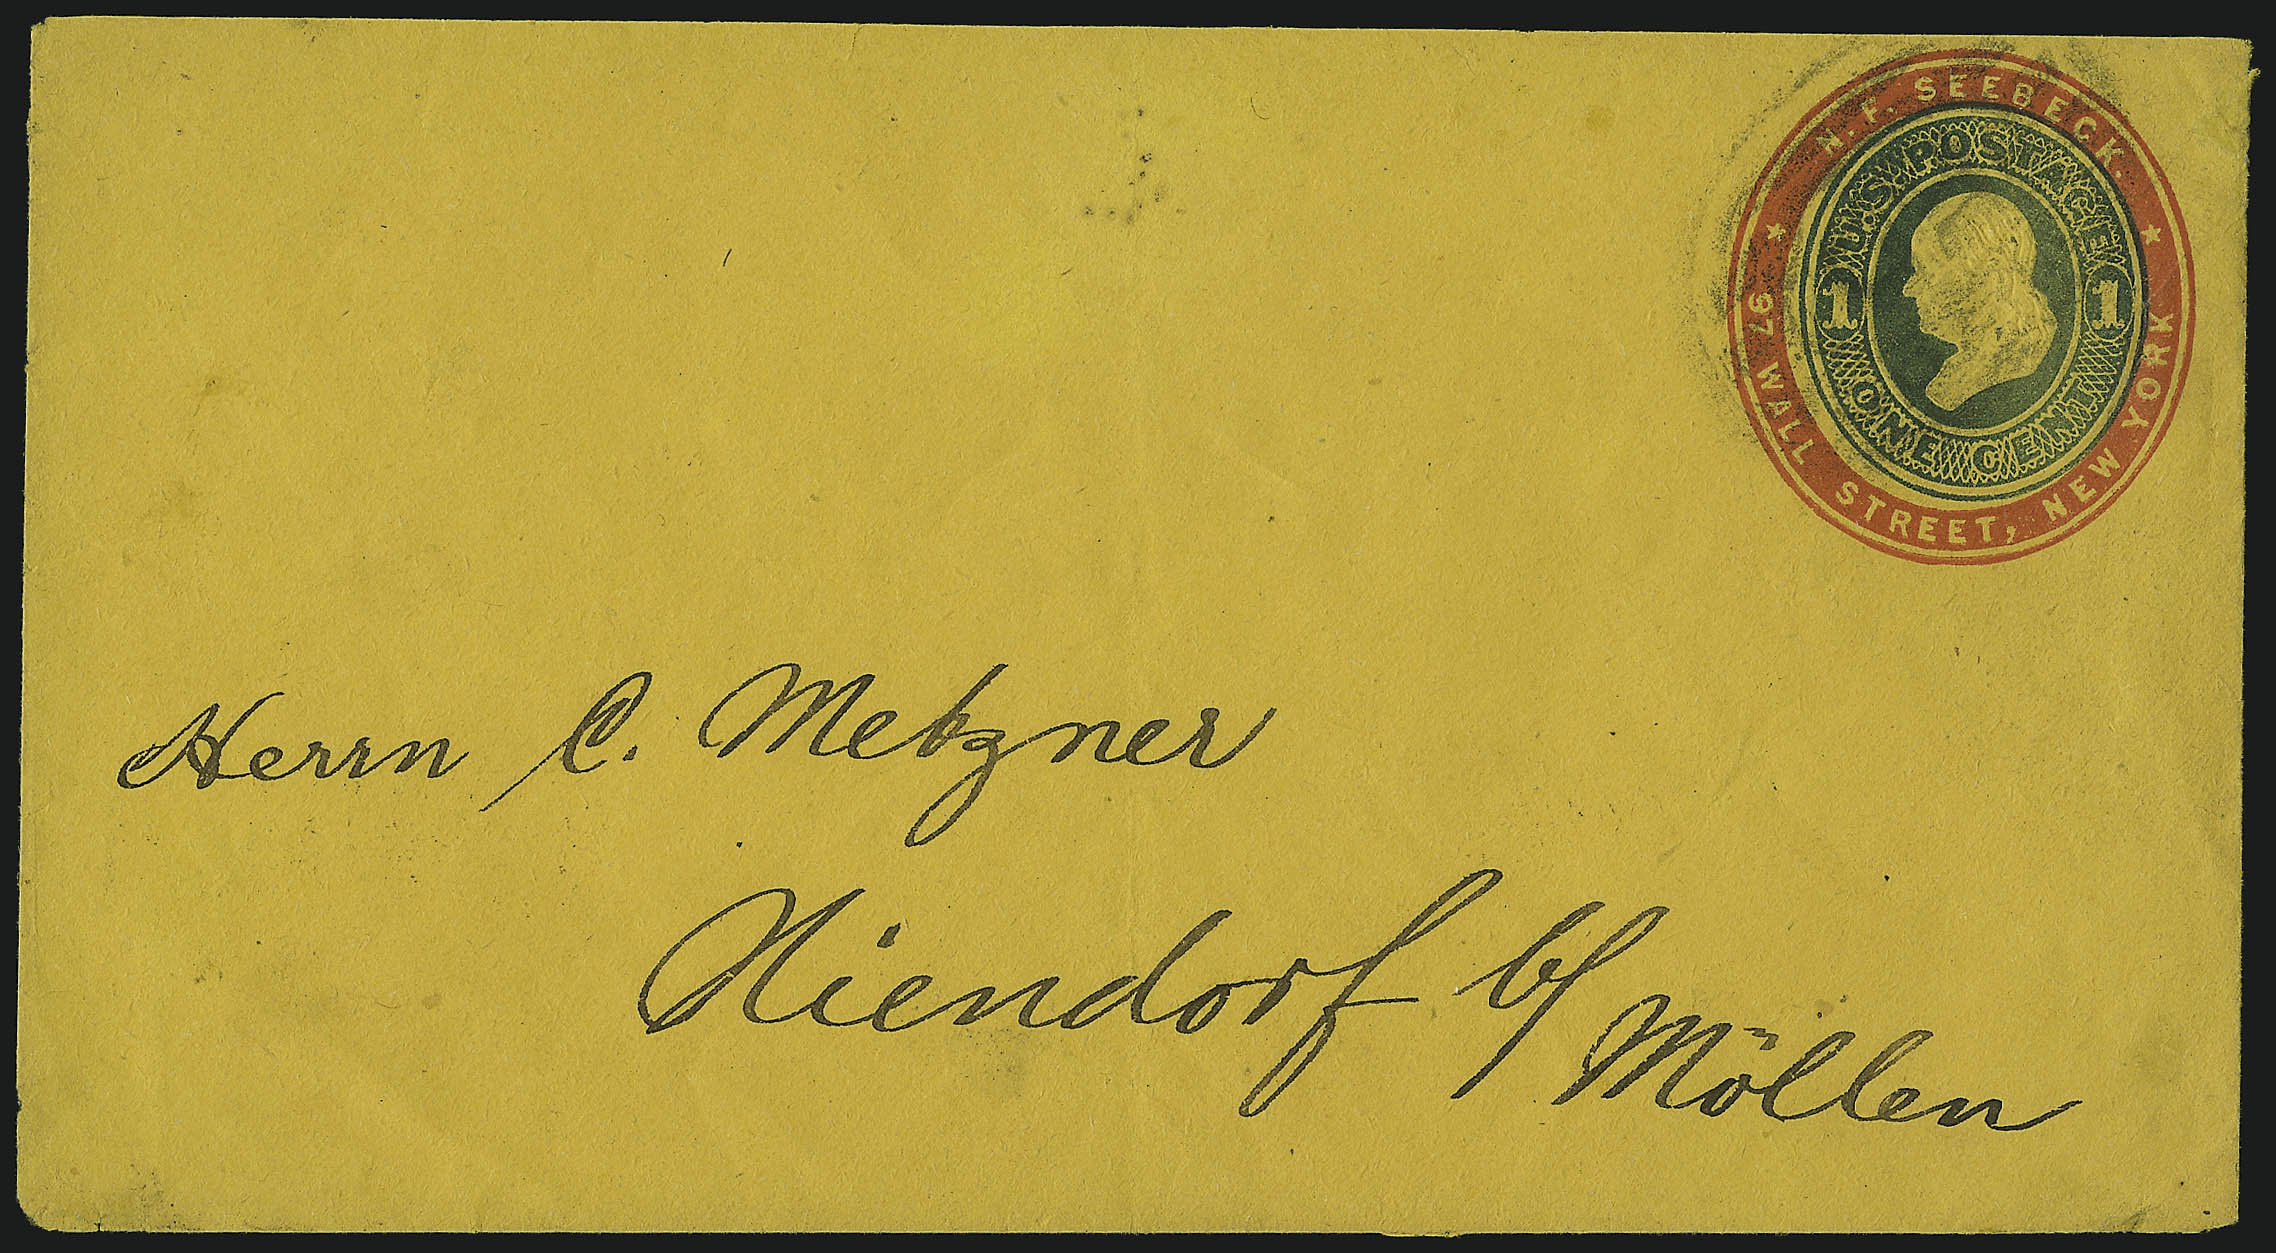 N. F. SEEBECK.
97 WALL STREET, NEW YORK
U.S. POSTAGE
1 1
ONE CENT
Herrn C. Metzner
Niendorf b/ Möllen